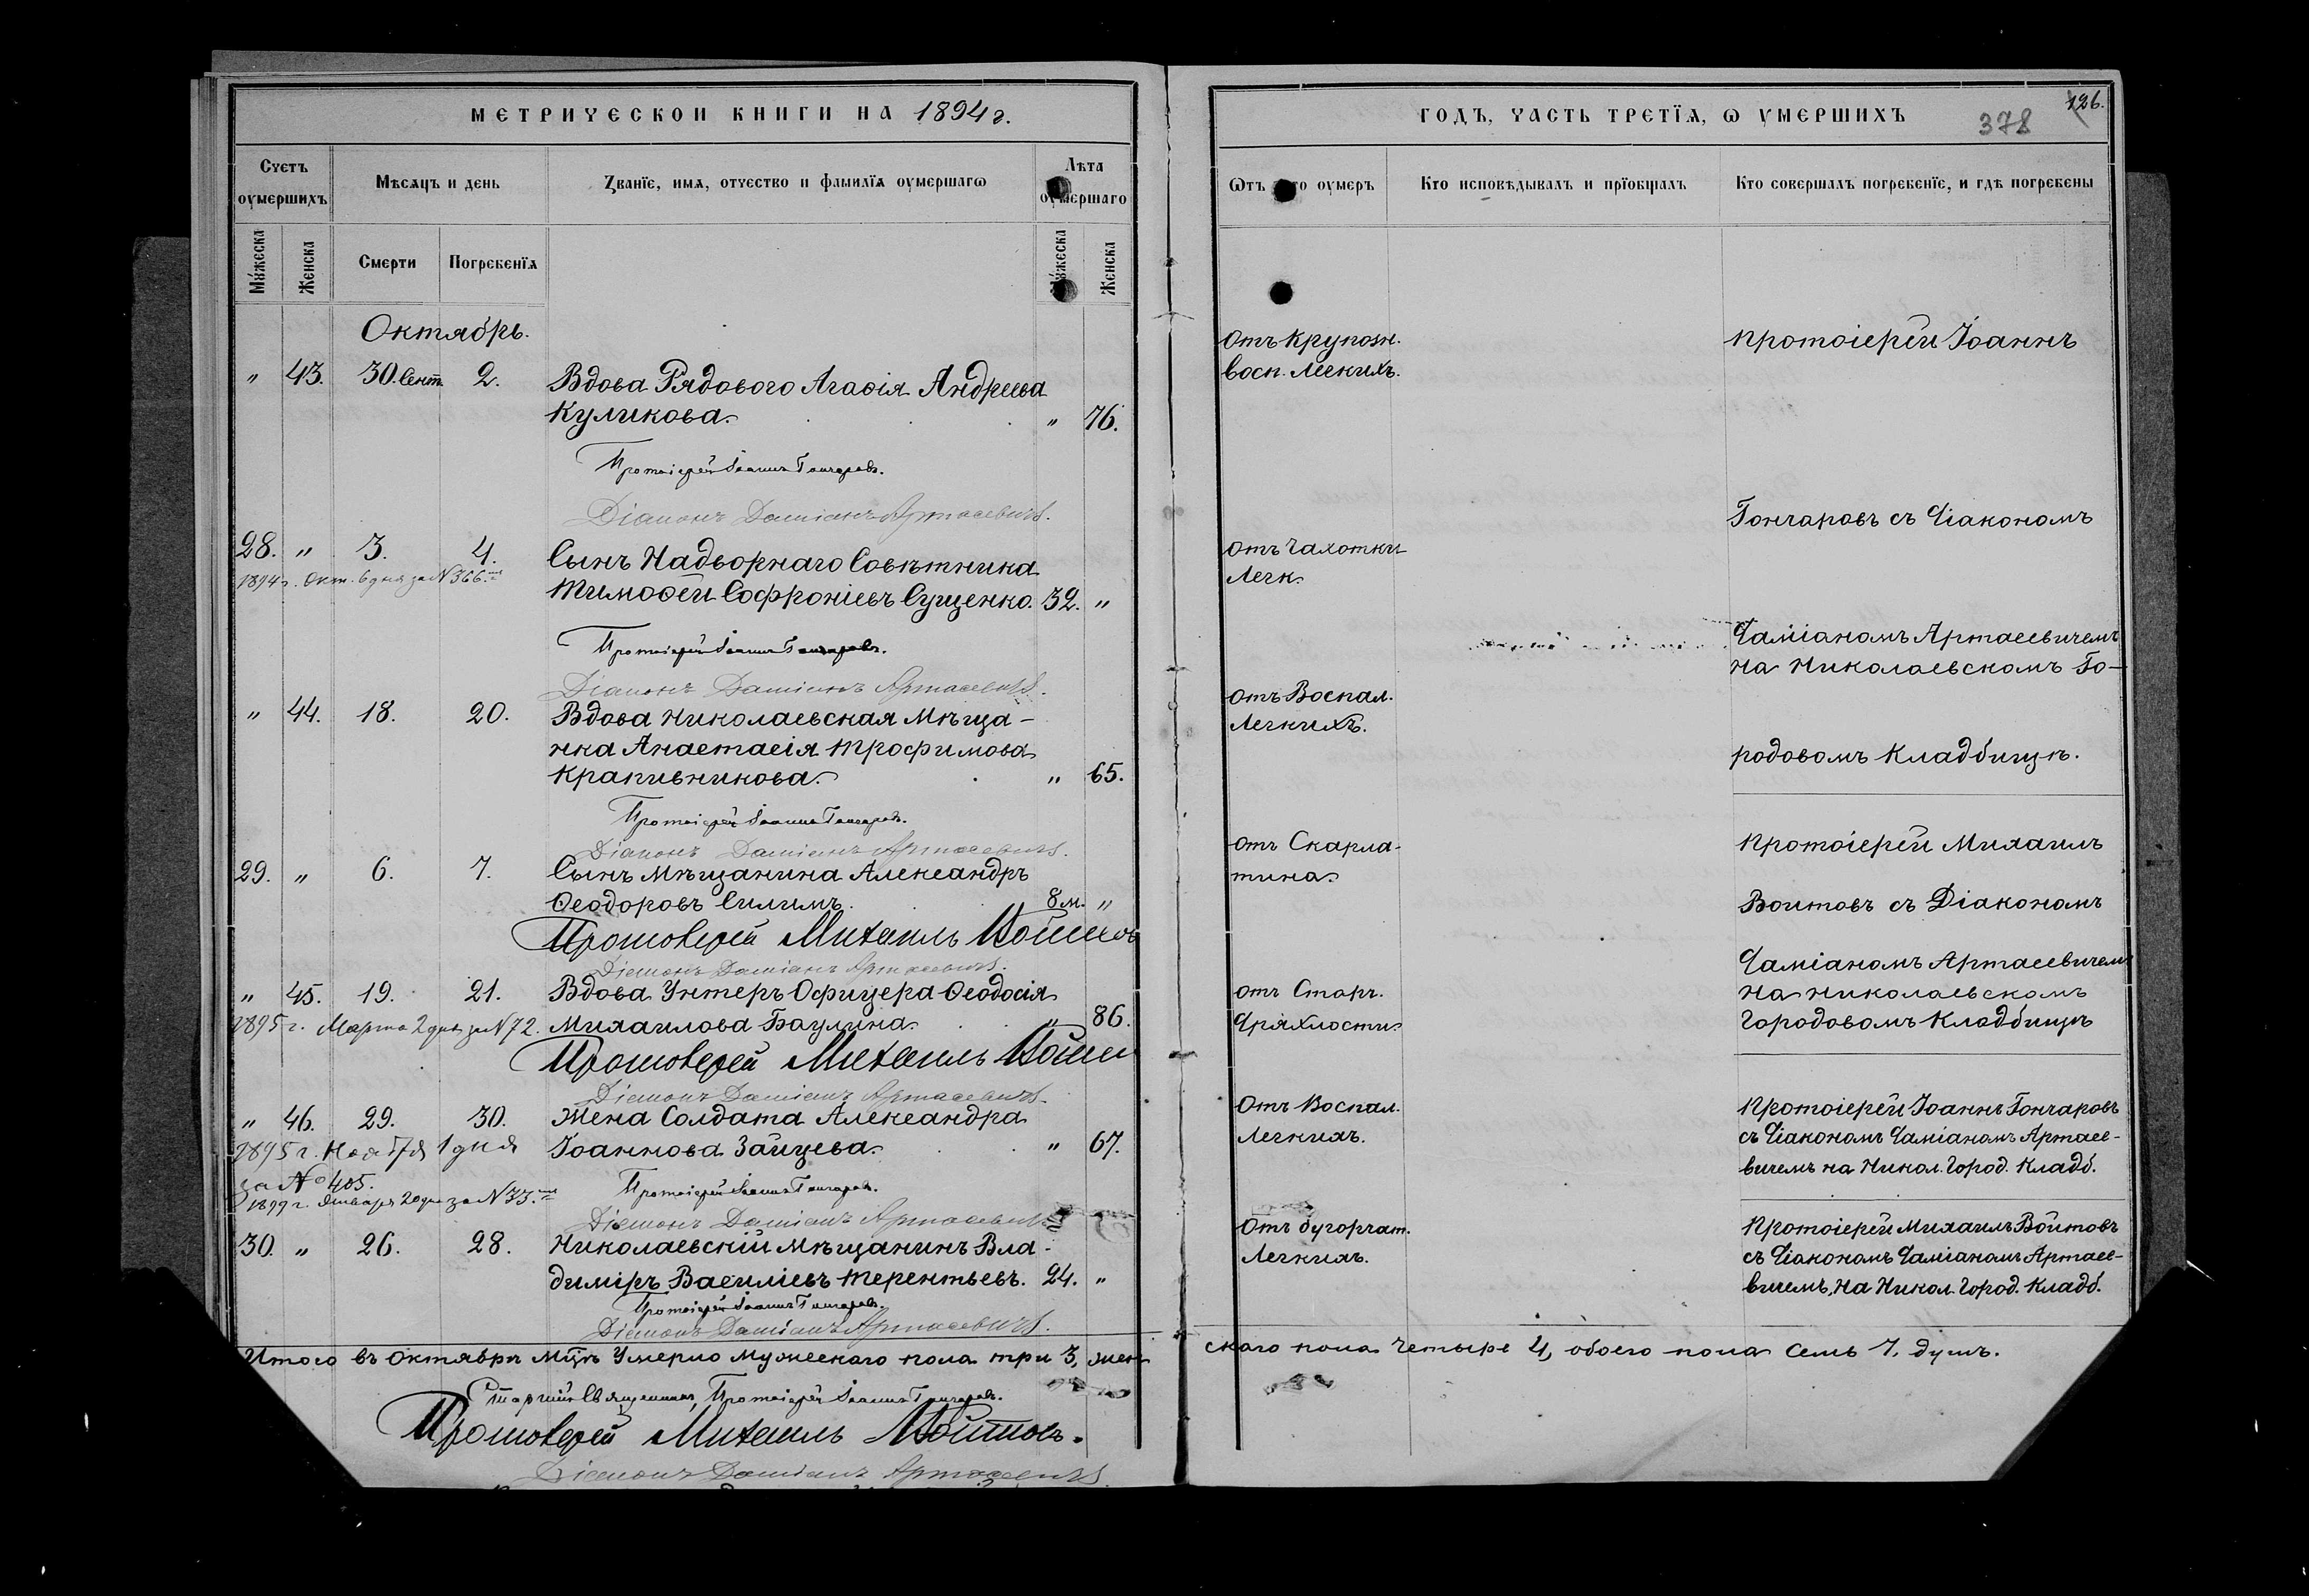 МЕТРИЧЕСКОИ КНИГИ НА 1894 г.
Счетъ оумершихъ
Мѣсяцъ и день
Званїе, имя, отчество и фамилїя оумершагѡ
Лѣта оумершаго
Мужеска
Женска
Смерти
Погребенїя
Мужеска
Женска
Октябрь.
" 43. 30. Сент. 2. Вдова Рядового Агаѳія Андреева
Куликова. " 76.
Протоіерей Іоаннъ Гончаровъ.
Діаконъ Даміанъ Артасевичъ.
28. " 3. 4. Сынъ Надворнаго Совѣтника
1894 г. Окт. 6 дня за N 366.
Тимоѳей Софроніевъ Сущенко. 32. "
Протоіерей Іоаннъ Гончаровъ.
Діаконъ Даміанъ Артасевичъ.
" 44. 18. 20. Вдова Николаевская Мѣща-
нка Анастасія Трофимова
Крапивникова. " 65.
Протоіерей Іоаннъ Гончаровъ.
Діаконъ Даміанъ Артасевичъ.
29. " 6. 7. Сынъ Мѣщанина Александръ
Ѳеодоровъ Силинъ. 8 м. "
Протоіерей Михаилъ Войтовъ
Діаконъ Даміанъ Артасевичъ.
" 45. 19. 21. Вдова Унтеръ Офицера Ѳеодосія
1895 г. Марта 2 дня за N 72. Михаилова Баулина. " 86.
Протоіерей Михаилъ
Діаконъ Даміанъ Артасевичъ.
" 46. 29. 30. Жена Солдата Александра
1895 г. Ноября 1 дня Іоаннова Зайцева. " 67.
за № 405.
1899 г. Января 20 дня за N 33.
Протоіерей Іоаннъ Гончаровъ.
Діаконъ Даміанъ Артасевичъ.
30. " 26. 28. Николаевскій Мѣщанинъ Вла-
диміръ Василіевъ Терентьевъ. 24. "
Протоіерей Іоаннъ Гончаровъ.
Діаконъ Даміанъ Артасевичъ.
Итого въ Октябрѣ Мцѣ Умерло Мужескаго пола три 3, жен
Старшій Священникъ, Протоіерей Іоаннъ Гончаровъ.
Протоіерей Михаилъ Войтовъ.
Діаконъ Даміанъ Артасевичъ
ГОДЪ, ЧАСТЬ ТРЕТЇЯ, Ѡ УМЕРШИХЪ
378
126.
Ѿтъ чего оумеръ
Кто исповѣдывалъ и прїобщалъ
Кто совершалъ погребенїе, и гдѣ погребены
Отъ Крупозн.
восп. Легкихъ.
Протоіерей Іоаннъ
Гончаровъ съ Діакономъ
отъ Чахотки
Легк.
Даміаномъ Артасевичемъ
на Николаевскомъ Го-
отъ Воспал.
Легкихъ.
родовомъ Кладбищѣ.
отъ Скарла-
тина.
Протоіерей Михаилъ
Войтовъ съ Діакономъ
Даміаномъ Артасевичем
на Николаевскомъ
Городовомъ Кладбищѣ
отъ Старч.
Дряхлости.
Отъ Воспал.
Легкихъ.
Протоіерей Іоаннъ Гончаровъ
съ Діакономъ Даміаномъ Артасе-
вичемъ на Никол. Город. Кладб.
Отъ бугорчат.
Легкихъ.
Протоіерей Михаилъ Войтовъ
съ Діакономъ Даміаномъ Артасе-
вичемъ, на Никол. Город. Кладб.
скаго пола Четыре 4, обоего пола Семь 7. душъ.